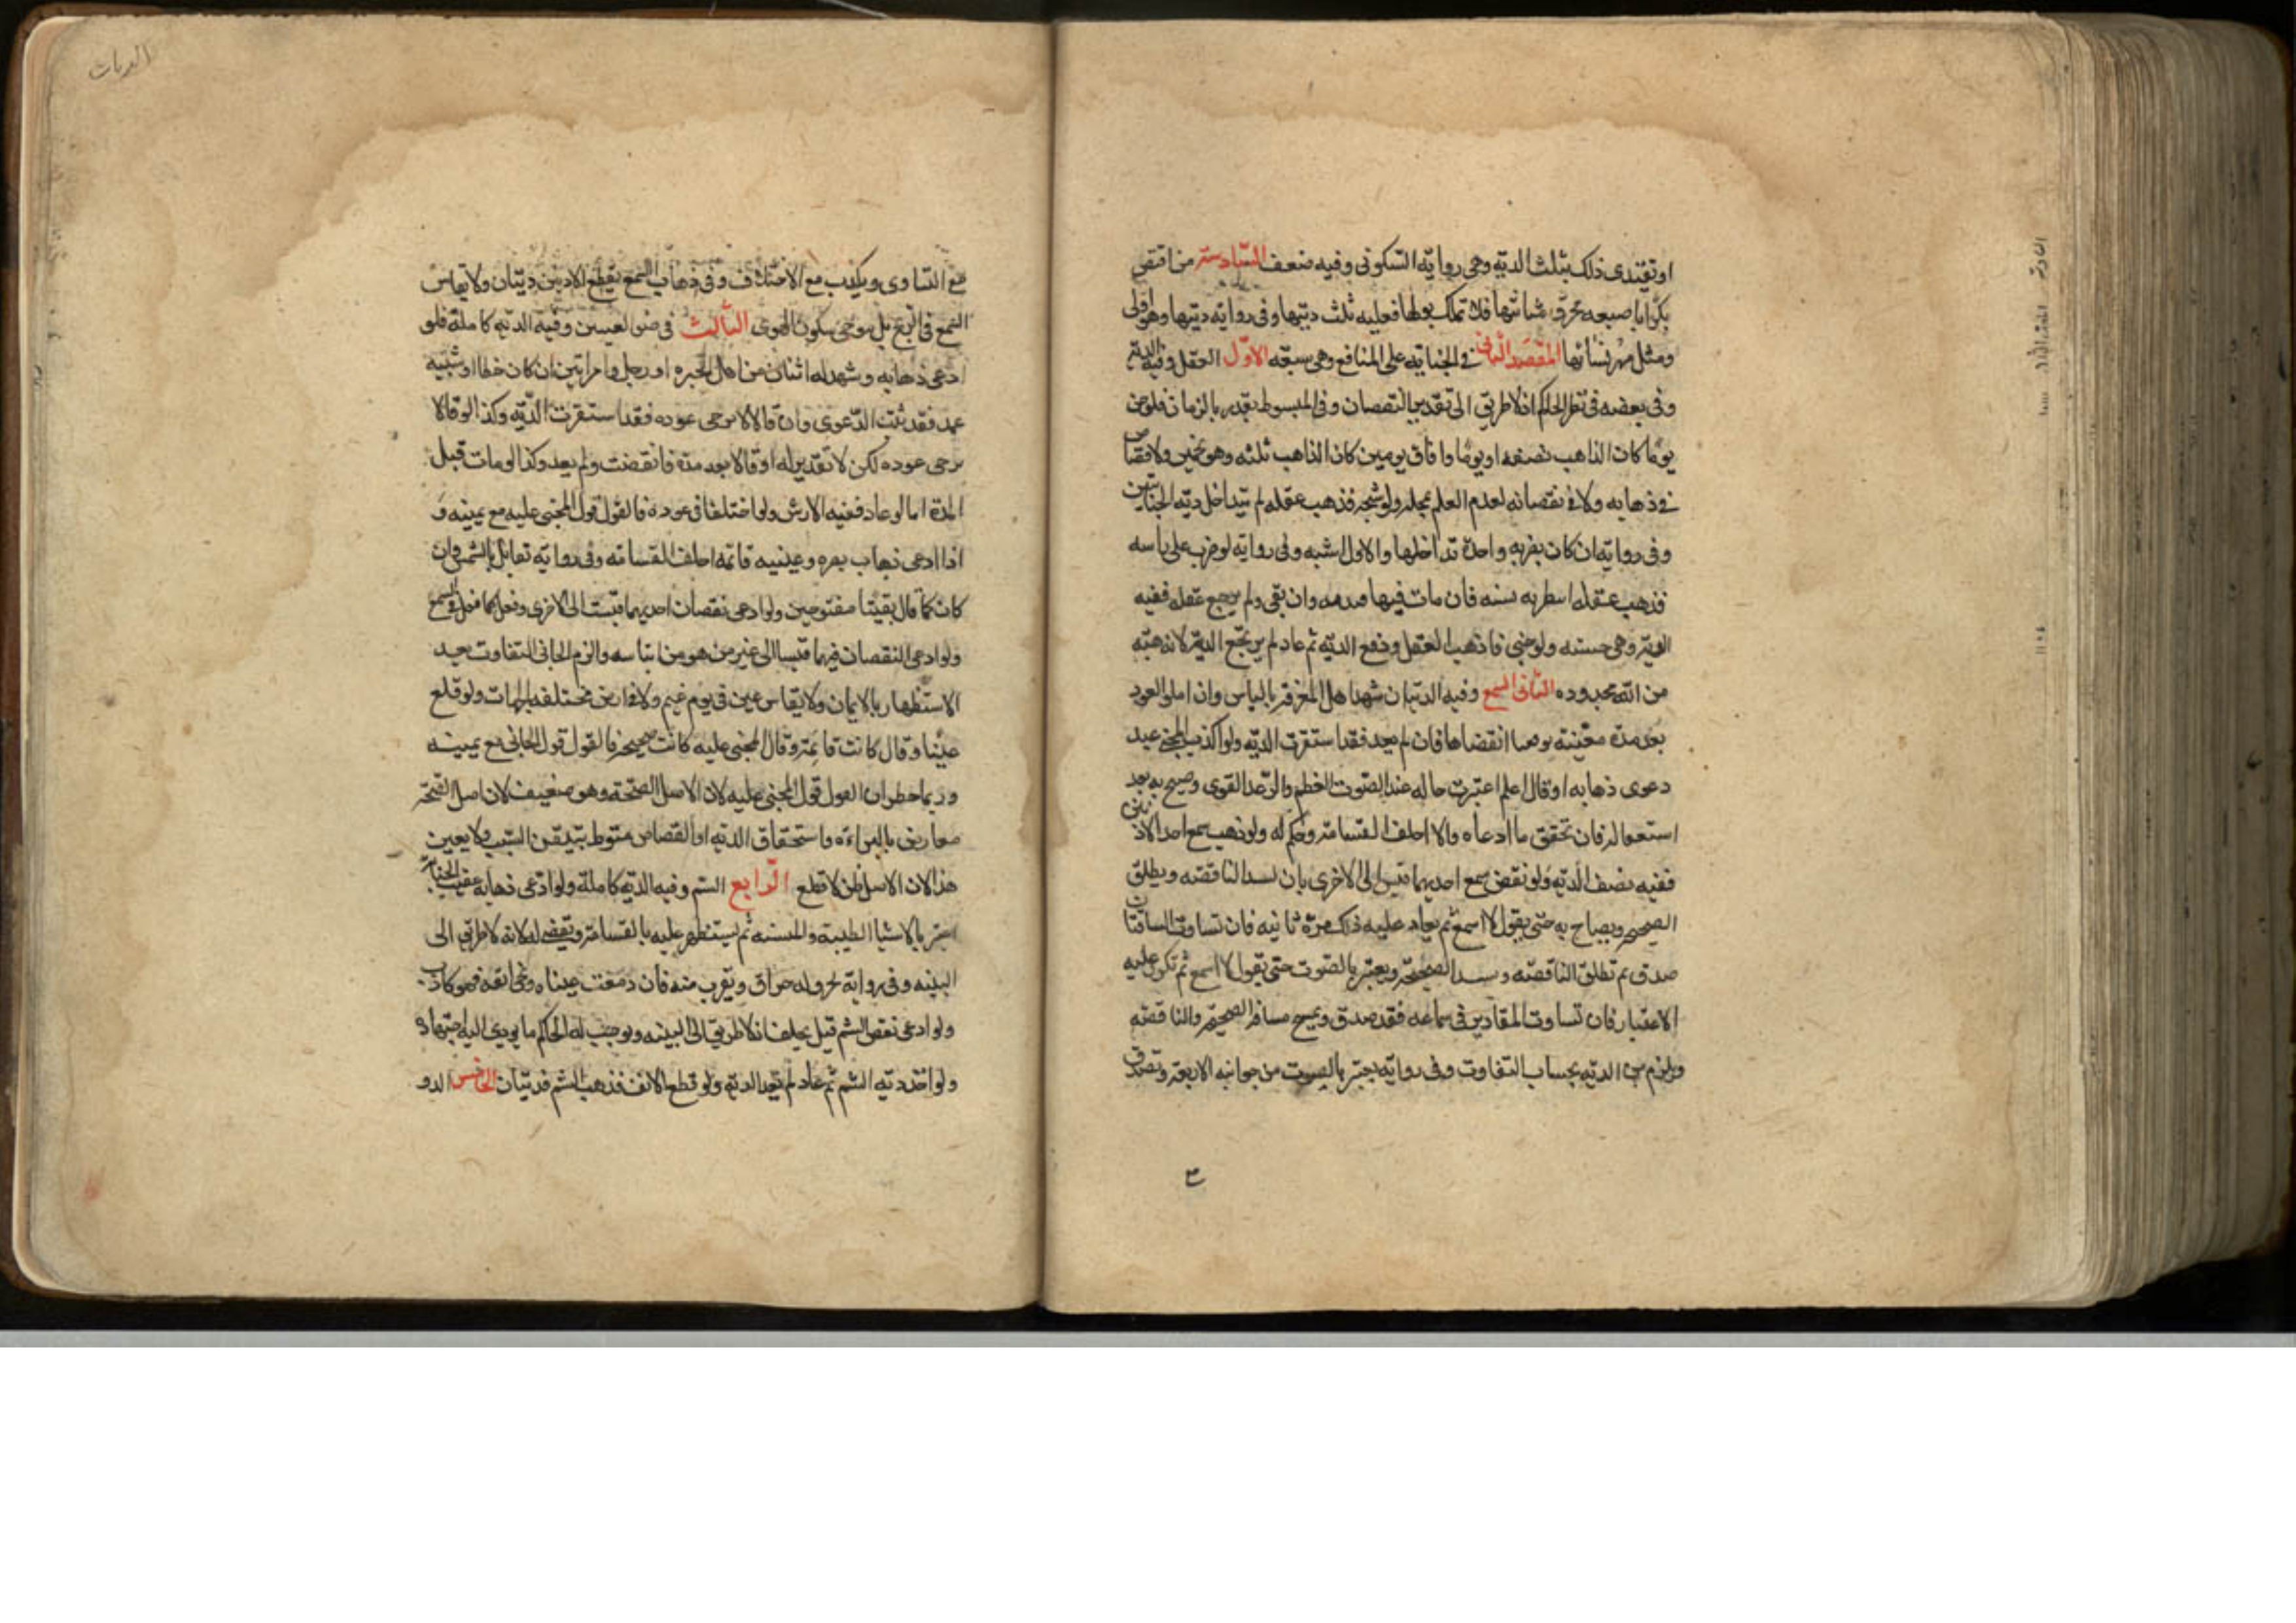 او تفتدى ذلك بثلث الدية وهى رواية السكونى وفيه ضعف السادسة من افتض
بكرا باصبعه فخرق مثانتها فلا تملك بولها فعليه ثلث ديتها وفى رواية ديتها وهو اولى
ومثل مهر نسائها المقصد الثانى فى الجناية على المنافع وهى سبعة الاول العقل وفيه الدية
وفى بعضه فى نظر الحاكم اذ لا طريق الى تقدير النقصان وفى المبسوط يقدر بالزمان فلو جن
يوما كان الذاهب نصفه او يوما وافاق يومين كان الذاهب ثلثه وهو تخمين ولا قصاص
فى ذهابه ولا فى نقصانه لعدم العلم بمحله ولو شجه فذهب عقله لم يتداخل دية الجنايتين
وفى رواية ان كان بضربه واحدة تداخلها والاول اشبه وفى رواية لو ضرب على راسه
فذهب عقله انتظر به سنه فان مات فيها قيد به وان بقى ولم يرجع عقله ففيه
الدية وهى حسنه ولو جنى فاذهب العقل ودفع الدية ثم عاد لم يرتجع الدية لانه هبه
من الله مجدوده الثانى السمع وفيه الدية ان شهد اهل المعرفة بالياس وان املوا العود
بعد مدة معينة توقعنا انقضاها فان لم يعد فقد استقرت الدية ولو اكذب الجانى عند
دعوى ذهابه او قال لا اعلم اعتبرت حاله عند الصوت العظم والرعد القوى وصيح به بعد
استغفاله فان تحقق ما ادعاه والا احلف القسامة وحكم له ولو ذهب سمع احد الاذنين
ففيه نصف الدية ولو نقص سمع احديهما قيس الى الاخرى بان تسد الناقصه ويطلق
الصحيحه ويصاح به حتى يقول لا اسمع ثم يعاد عليه ذلك مرة ثانيه فان تساوت المسافتان
صدق ثم تطلق الناقصه وتسد الصحيحة ويعتبر بالصوت حتى يقول لا اسمع ثم تكرر عليه
الاعتبار فان تساوت المقادير فى سماعه فقد صدق ويمسح مسافة الصحيحه والناقصه
ويلزم من الدية بحساب التفاوت وفى رواية يعتبر بالصوت من جوانبه الاربعة وتصدق
مع التساوى ويكذب مع الاختلاف وفى ذهاب السمع بقطع الاذنين ديتان ولا يقاس
السمع فى الريح بل يتوخى سكون الهوى الثالث فى ضوء العينين وفيه الدية كاملة فلو
ادعى ذهابه وشهد له اثنان من اهل الخبره او رجل وامراتين ان كان خطا او شبيه
عمد فقد ثبت الدعوى وان قالا لا يرجى عوده فقد استقرت الدية وكذا لو قالا
يرجى عوده لكن لا تقدير له او قالا بعد مدة فانقضت ولم يعد وكذا لو مات قبل
المدة اما لو عاد ففيه الارش ولو اختلفا فى عوده فالقول قول المجنى عليه مع يمينه و
اذا ادعى ذهاب بصره وعينيه قائمه احلف القسامه وفى رواية تقابل بالشمس فان
كان كما قال بقيتا مفتوحين ولو ادعى نقصان احديهما قيست الى الاخرى وفعل كما فعل فى السمع
ولو ادعى النقصان فيهما قيسا الى غير من هو من ابنا سنه والزم الجانى التفاوت بعد
الاستظهار بالايمان ولا يقاس عين فى يوم غيم ولا فى ارض مختلفة الجهات ولو قلع
عينا وقال كانت قائمة وقال المجنى عليه كانت صحيحه فالقول قول الجانى مع يمينه
وربما خطر ان القول قول المجنى عليه لان الاصل الصحة وهو ضعيف لان اصل الصحة
معارض بالبراءه واستحقاق الدية او القصاص منوط بتيقن السبب ولا يقين
هذا لان الاصل ظن لا قطع الرابع الشم وفيه الدية كاملة ولو ادعى ذهابه عقيب الجناية
اعتبر بالاشيا الطيبة والمنتنه ثم يستظهر عليه بالقسامة ويقضى له لانه لا طريق الى
البينه وفى رواية تحرق له حراق ويقرب منه فان دمعت عيناه ونحى انفه فهو كاذب
ولو ادعى نقص الشم قيل يحلف اذ لا طريق الى البينه ويوجب له الحاكم ما يودى اليه اجتهاده
ولو اخذ دية الشم ثم عاد لم تعد الدية ولو قطع الانف فذهب الشم فديتان الخامس الذو
الديات